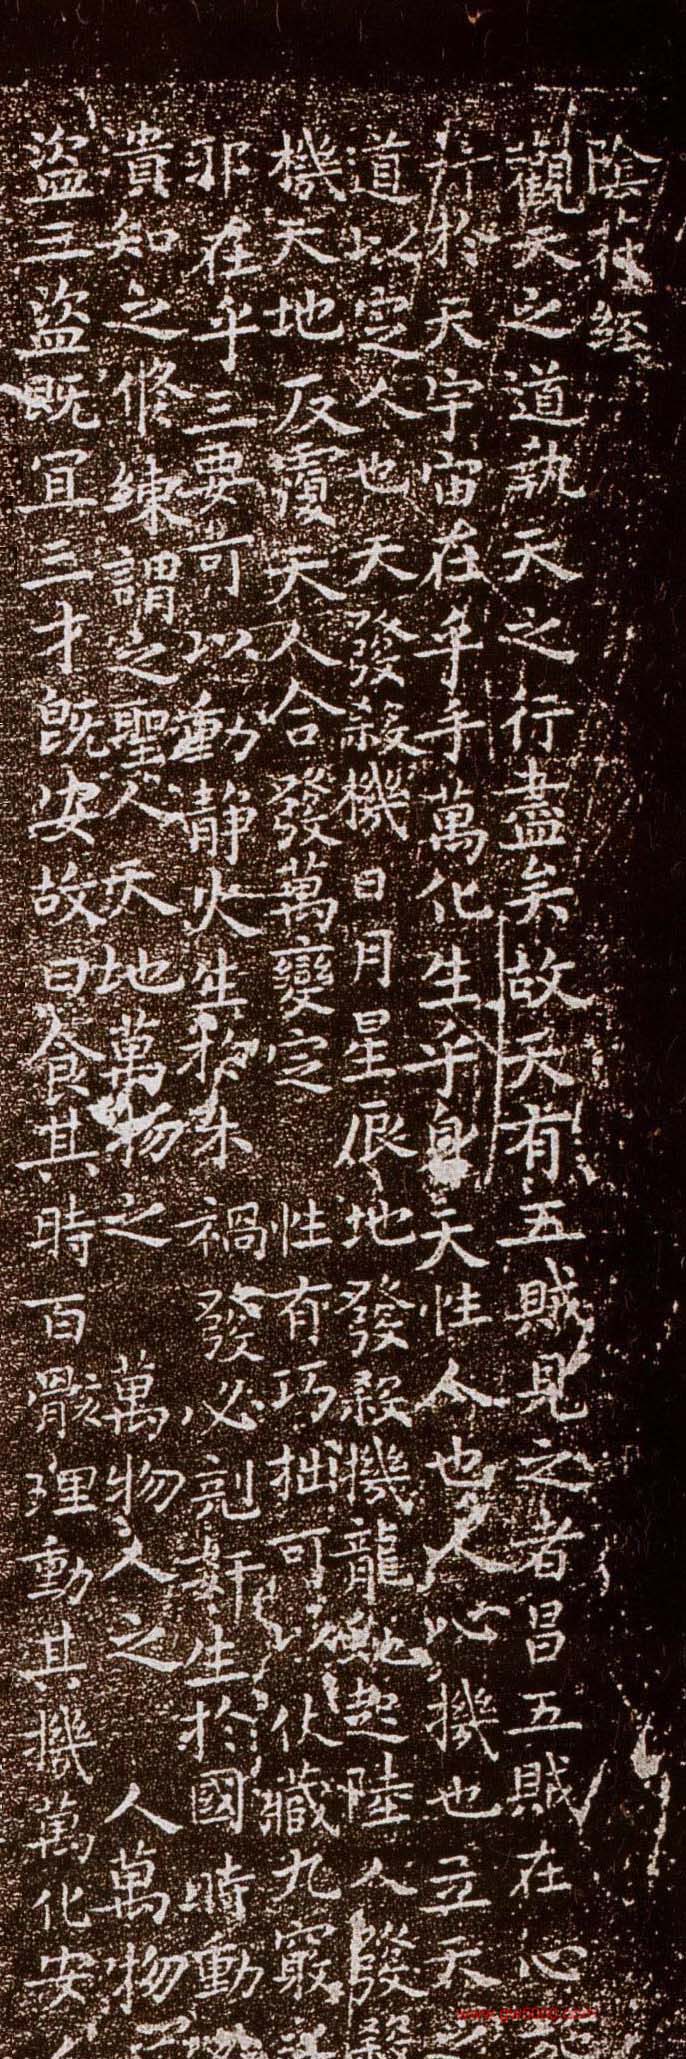 陰符經
觀天之道執天之行盡矣故天有五賊見之者昌五賊在心
於天宇宙在乎手萬化生乎身天性人也人心機也立天之
道以定人也天發殺機日月星辰地發殺機龍虵起陸人發殺
機天地反覆天人合發萬變定 性有巧拙可以伏藏九竅
邪在乎三要可以動靜火生於木 禍發必剋姧生於國 時動
貴知之修練謂之聖人天地萬物之 萬物人之 人萬物之
盜三盜既冝三才旣安故曰食其時百骸理動其機萬化安